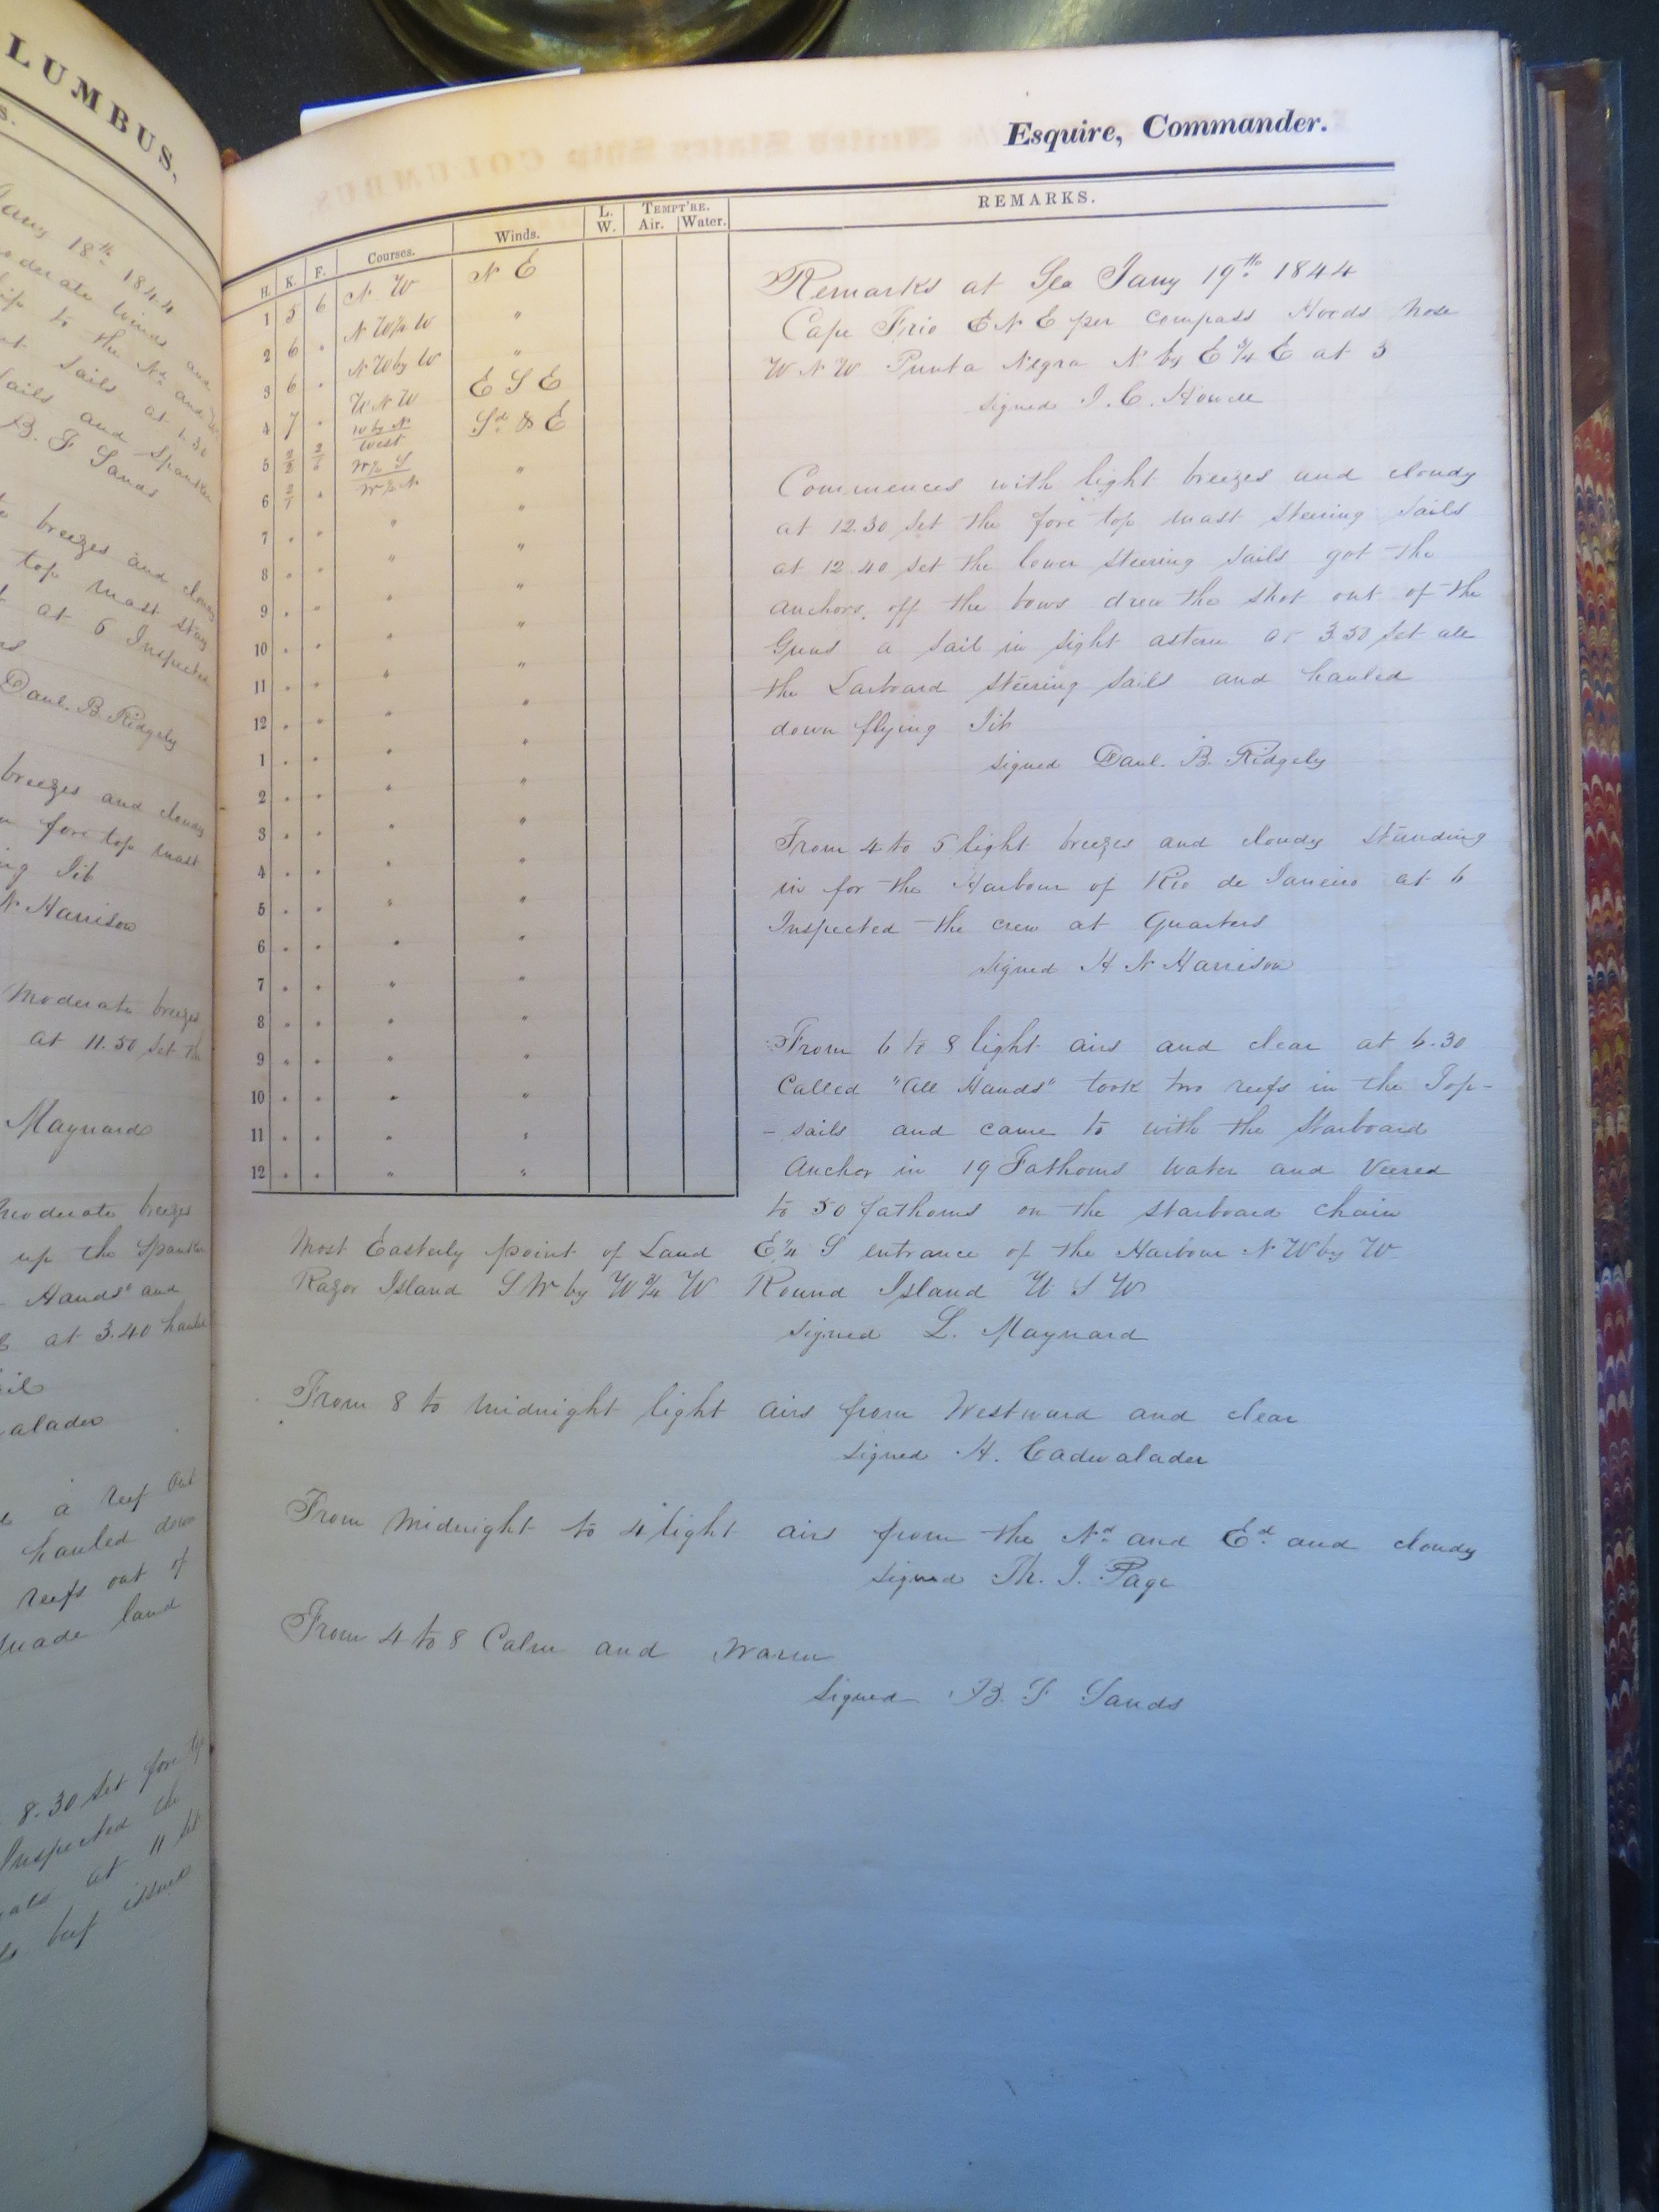 LUMBUS,
S.
Jany 18th 1844
moderate winds and
ip to the Nd and
sails at 1.30
sails and Spanker
B. F Sands
breezes and cloudy
top mast stay
at 6 Inspected
Danl. B. Ridgely
breezes and cloudy
fore top mast
Jib
N Harrison
Moderate breezes
at 11.50 set the
Maynard
moderate breezes
up the Spanker
Hands" and
at 3.40 hauled
alader
a reef out
hauled down
reefs out of
made land
8.30 set fore top
Inspected the
at 11
beef issued
Esquire, Commander.
H. K. F. Courses. Winds. L. W. TEMPT'RE. Air. Water. REMARKS.
1 5 6 N W N E
2 6 . N W ½ W "
3 6 . N W by W "
4 7 . W N W E S E
5 W by N West Sd & E
6 W ½ S W ½ N "
7 . . " "
8 . . " "
9 . . " "
10 . . " "
11 . . " "
12 . . " "
1 . . " "
2 . . " "
3 . . " "
4 . . " "
5 . . " "
6 . . " "
7 . . " "
8 . . " "
9 . . " "
10 . . " "
11 . . " "
12 . . " "
Remarks at Sea Jany 19th 1844
Cape Frio E N E per compass Hoods Nose
W N W Punta Negra N by E ¾ E at 3
signed J. C. Howell
Commences with light breezes and cloudy
at 12.30 set the fore top mast steering sails
at 12.40 set the lower steering sails got the
anchors off the bows drew the shot out of the
Guns a sail in sight astern at 3.50 set all
the Larboard steering sails and hauled
down flying Jib
signed Danl. B. Ridgely
From 4 to 6 light breezes and cloudy standing
in for the Harbour of Rio de Janeiro at 6
Inspected the crew at Quarters
signed H N Harrison
From 6 to 8 light airs and clear at 6.30
Called "All Hands" took two reefs in the Top-
- sails and came to with the Starboard
Anchor in 19 Fathoms water and Veered
to 50 fathoms on the starboard chain
Most Easterly point of Land E ¼ S entrance of the Harbour N W by W
Razor Island S W by W ¾ W Round Island W S W
signed L. Maynard
From 8 to midnight light airs from Westward and clear
signed H. Cadwalader
From Midnight to 4 light airs from the Nd and Ed and cloudy
signed Th. J. Page
From 4 to 8 Calm and Warm
signed B. F Sands